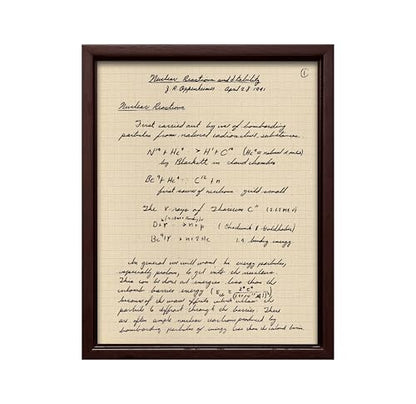 ①
Nuclear Reactions and Stability
J. R. Oppenheimer April 28 1941
Nuclear Reactions
First carried out by use of bombarding
particles from natural radioactive substances.
N¹⁴ + He⁴ → H¹ + O¹⁷ (He⁴ = natural α rays)
by Blackett in cloud chamber
Be⁹ + He⁴ C¹² + n
first source of neutrons yield small
The γ rays of Thorium C" (2.62 mev)
D + γ → n + p (Chadwick & Goldhaber)
Be⁹ + γ → n + 2He 1.6 binding energy
In general we will want hi energy particles,
especially protons, to get into the nucleus.
This can be done at energies less than the
coulomb barrier energy
because of the wave effects which allow the
particle to diffract through the barrier. There
are often simple nuclear reactions produced by
bombarding particles of energy less than the coulomb barrier.